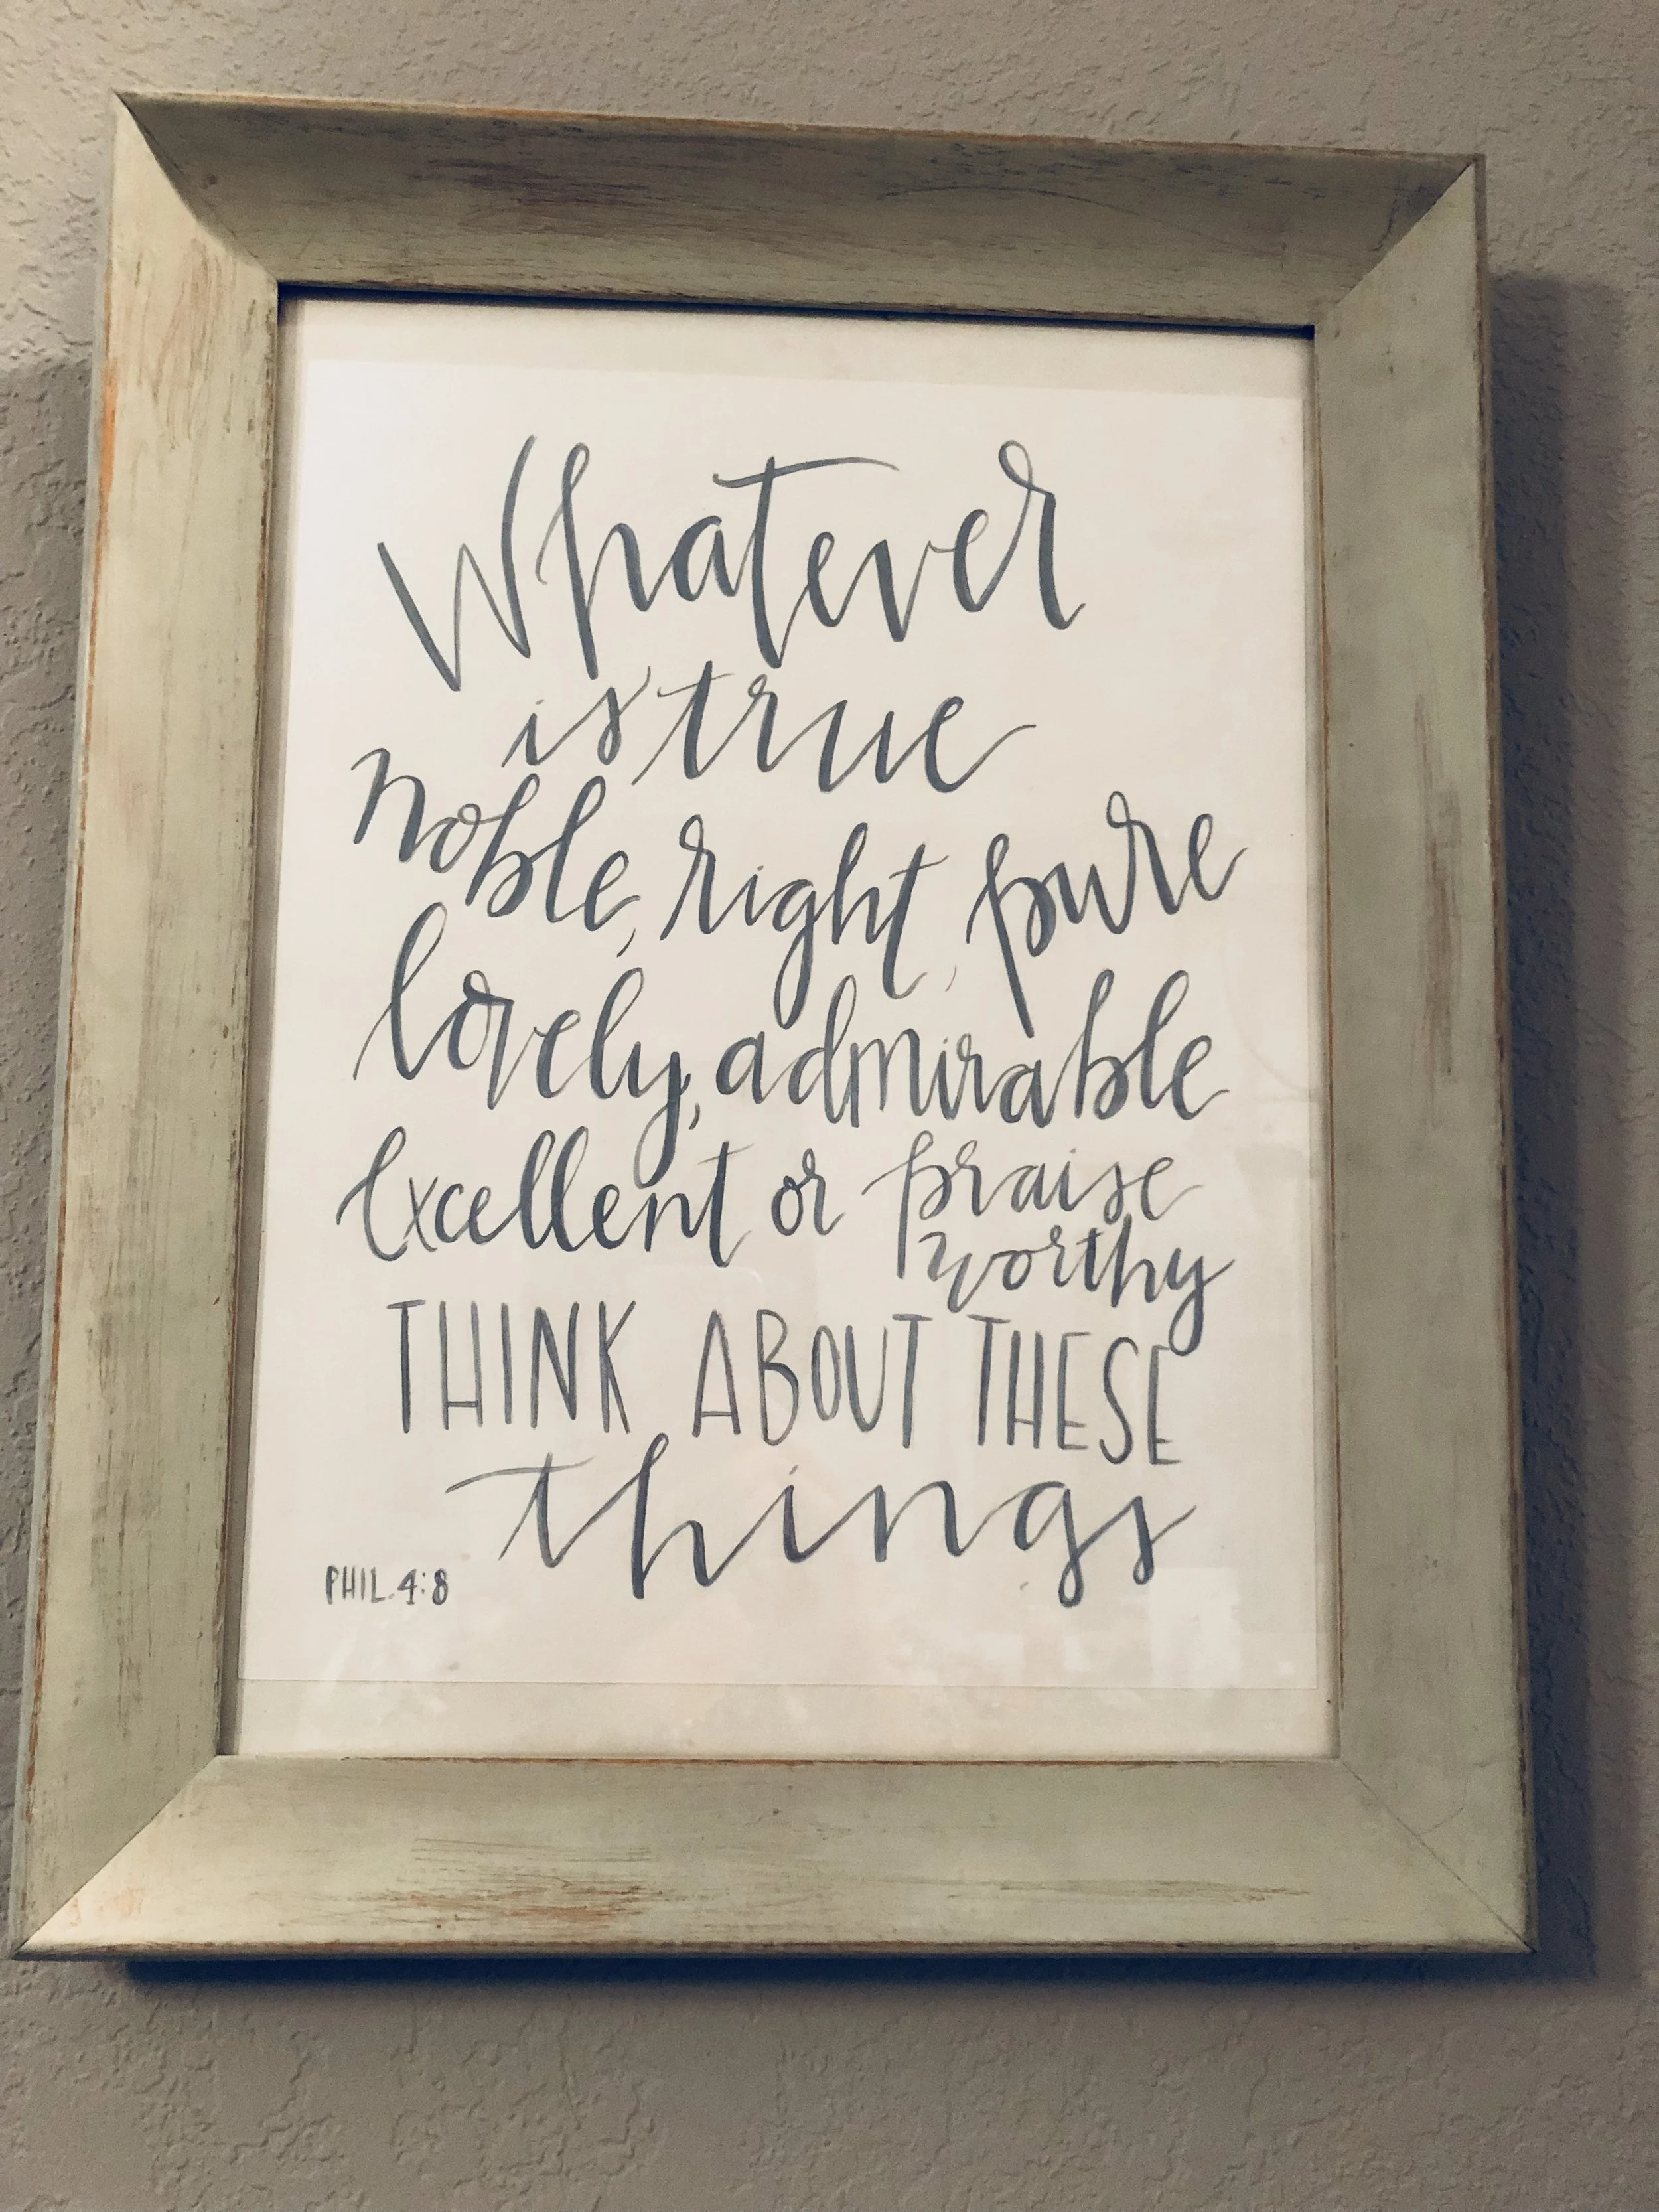 Whatever
is true
noble, right, pure
lovely, admirable
Excellent or praise
worthy
THINK ABOUT THESE
things
PHIL. 4:8